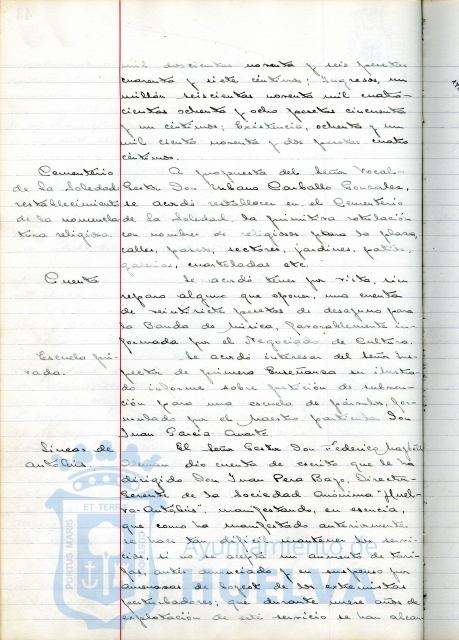 mil doscientas noventa y seis pesetas
cuarenta y siete céntimos; Ingresos, un
millón seiscientas noventa mil cuatro-
cientas ochenta y ocho pesetas cincuenta
y un céntimos; Existencia, ochenta y un
mil ciento noventa y dos pesetas cuatro
céntimos.
Cementerio
de la Soledad
restablecimiento
de la nomencla
tura religiosa.
A propuesta del Señor Vocal
Gestor Don Urbano Carballo Gonzalez,
se acordó restablecer en el Cementerio
de la Soledad, la primitiva rotulación
con nombres de religiosos para la plaza,
calles, paseos, sectores, jardines, patios,
galerias, cuarteladas etc.
Cuenta
Se acordó tener por vista, sin
reparo alguno que oponer, una cuenta
de veintisiete pesetas de desayuno para
la Banda de Música, favorablemente in-
formada por el Negociado de Cultura.
Escuela pri-
vada.
Se acordó interesar del Señor Ins-
pector de primera Enseñanza su ilustra-
do informe sobre petición de subven-
ción para una escuela de párvulos, for-
mulado por el Maestro particular Don
Juan Garcia
Lineas de
autobús.
El Señor Gestor Don Federico
dió cuenta de escrito que le ha
dirigido Don Juan Pera Bazo, Director-
Gerente de la Sociedad Anónima "Huel-
va-Autobús", manifestando, en esencia,
que como ha manifestado anteriormente
se hace tan dificil mantener los servi-
cios, si no se un aumento de tari-
fas, antes denunciado y en suspenso por
amenazas de boycot de los extremistas
perturbadores; que durante nueve años de
explotación de este servicio se han alcan
ET TERR
PORTUS MARIS
Ayuntamiento de
HUELVA